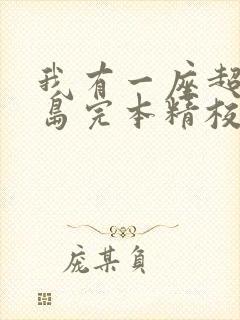 我有一座超
岛完本精校
庞某负